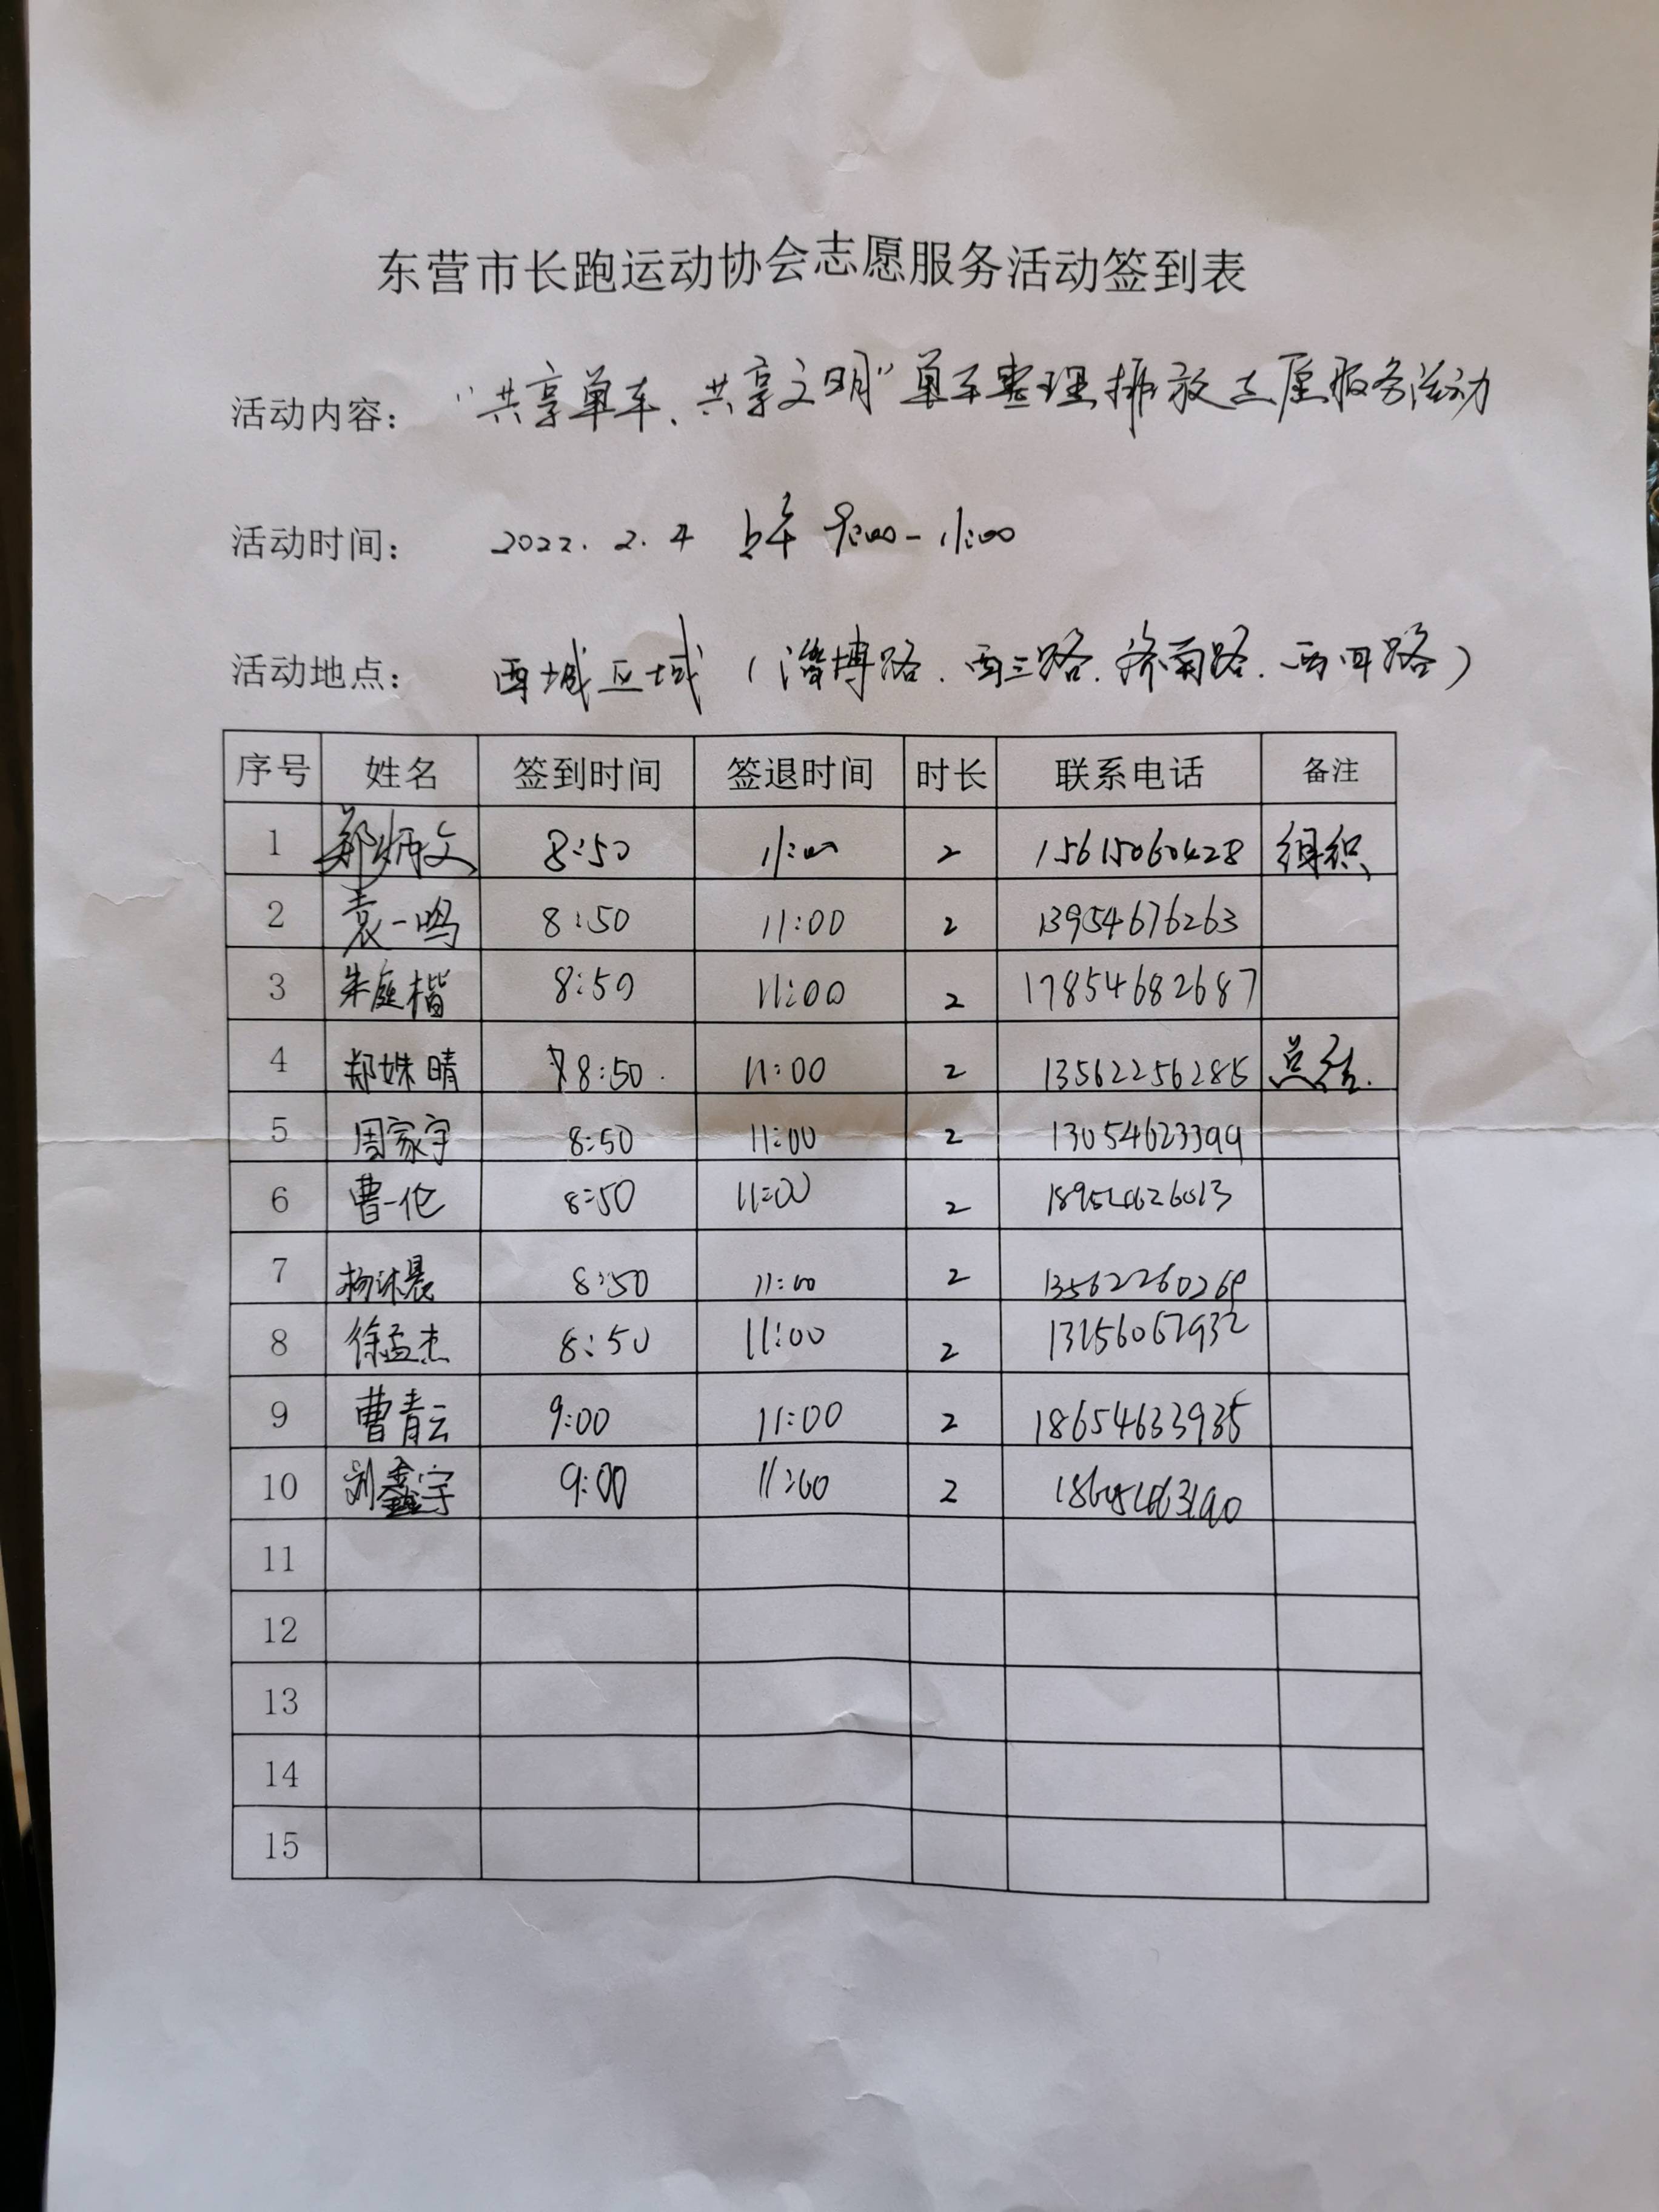 东营市长跑运动协会志愿服务活动签到表
活动内容： “共享单车、共享文明”单车整理排放志愿服务活动
活动时间： 2022.2.4 上午 9:00-11:00
活动地点： 西城区域（淄博路.西三路.济南路.西四路）
序号 姓名 签到时间 签退时间 时长 联系电话 备注
1 郑炳文 8:50 11:00 2 15615060428 组织
2 袁一鸣 8:50 11:00 2 13954676263
3 朱庭楷 8:50 11:00 2 17854682687
4 郑姝晴 8:50 11:00 2 13562256285 总结.
5 周家宇 8:50 11:00 2 13054623399
6 曹一伦 8:50 11:00 2 18954626013
7 杨沐晨 8:50 11:00 2
8 徐孟杰 8:50 11:00 2
9 曹青云 9:00 11:00 2 18654633935
10 刘鑫宇 9:00 11:00 2
11
12
13
14
15